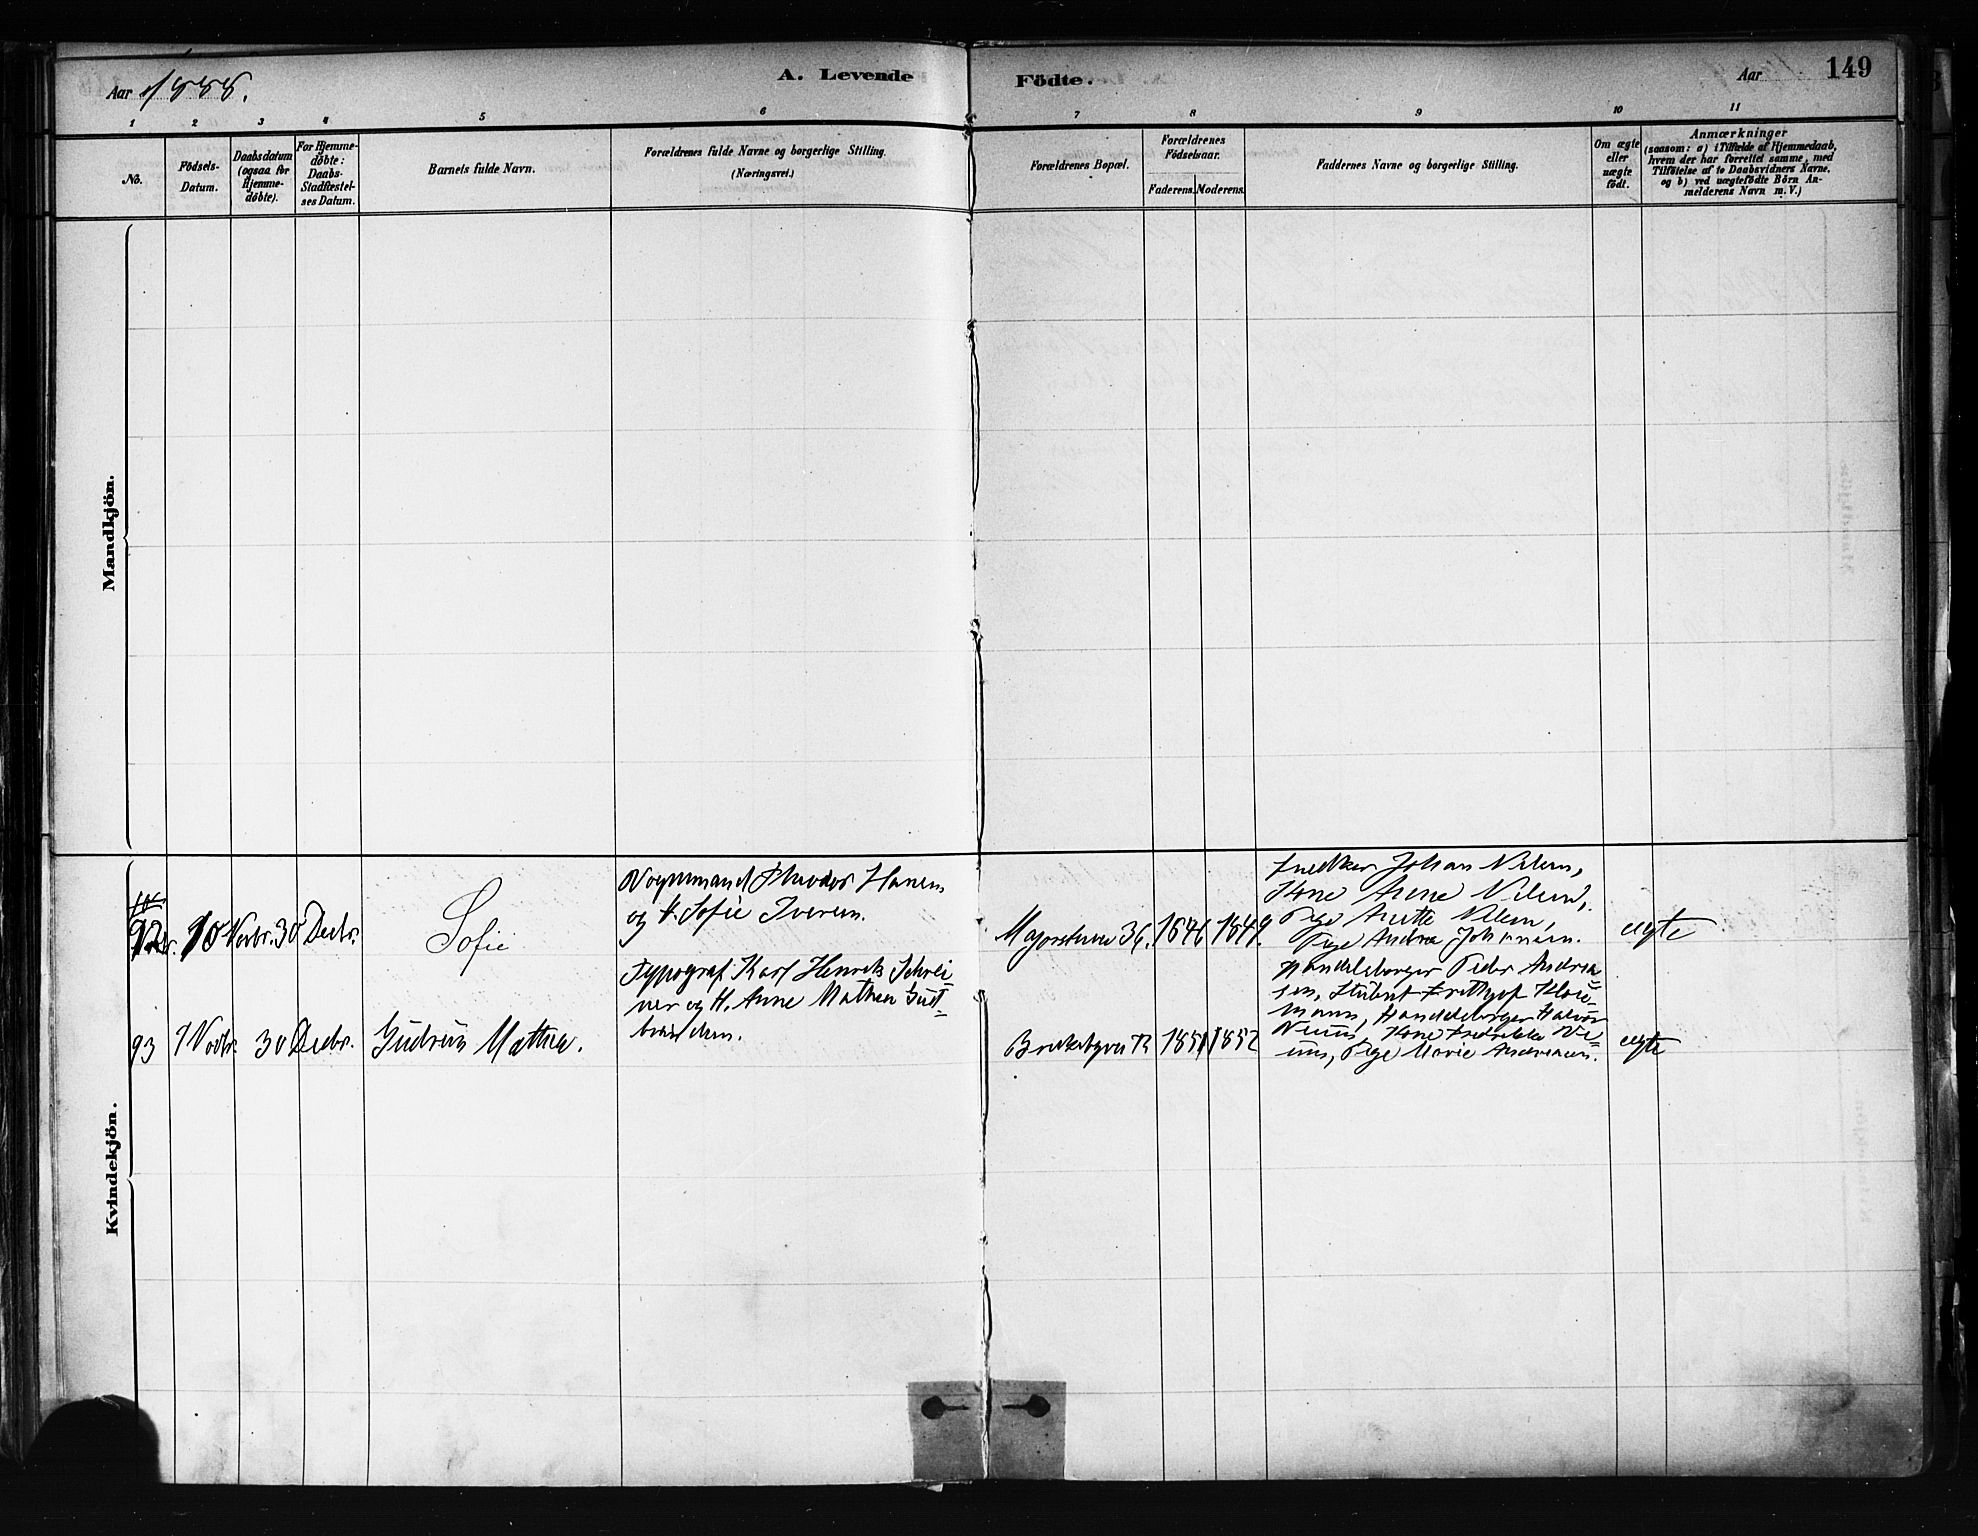 Aar 1888.
A. Levende
Födte.
Aar
149
1 2 3 4 5 6 7 8 9 10 11
No.
Födsels-
Datum.
Daabsdatum
(ogsaa for
Hjemme-
döbte).
For Hjemme-
döbte:
Daabs-
Stadfæstel-
ses Datum.
Barnets fulde Navn.
Forældrenes fulde Navne og borgerlige Stilling.
(Næringsvei.)
Forældrenes Bopæl.
Forældrenes
Födselsaar.
Faderens. Moderens.
Faddernes Navne og borgerlige Stilling.
Om ægte
eller
uægte
födt.
Anmærkninger
(saasom: a) i Tilfælde af Hjemmedaab,
hvem der har forrettet samme, med
Tilföielse af to Daabsvidners Navne,
og b) ved uægtefödte Börn An-
melderens Navn m.V.)
Mandkjön.
Kvindekjön.
92
10 Novbr.
30 Decbr.
Sofie
Vognmand Theodor Hansen
og H. Sofie Iversen.
Majorstuen 36.
1846
1849.
Snedker Johan Nilsen,
Kone Anne Nilsen,
Pige Anette Nilsen,
Pige Andrea Johansen.
ægte
93
7 Novbr.
30 Decbr.
Gudrun Mathea.
Typograf Karl Henrik Schrei-
ner og H. Anne Mathea Gud-
brandsen.
1851
1852
Handelsborger Peder Andrea-
sen, Student Frithjof Klou-
mann, Handelsborger Halvor
Kone Fredrikke
Pige Marie Andreasen.
ægte